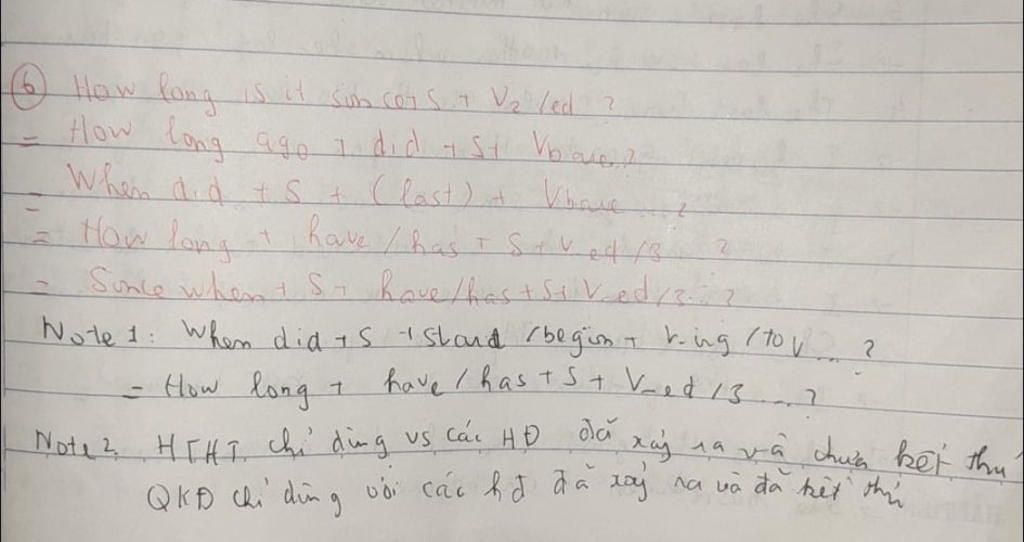 ⑥ How long is it since + S + V2/ed ?
= How long ago + did + S + Vbare ?
= When did + S + (last) + Vbare ... ?
= How long + have/has + S + V_ed/3 ... ?
= Since when + S + have/has + S + V_ed/3... ?
Note 1: When did + S + stard /begin + V-ing / to V ... ?
= How long + have/has + S + V_ed/3 ... ?
Note 2. HTHT chỉ dùng vs các HĐ đã xảy ra và chưa kết thú
QKĐ chỉ dùng với các hđ đã xảy ra và đã kết thú